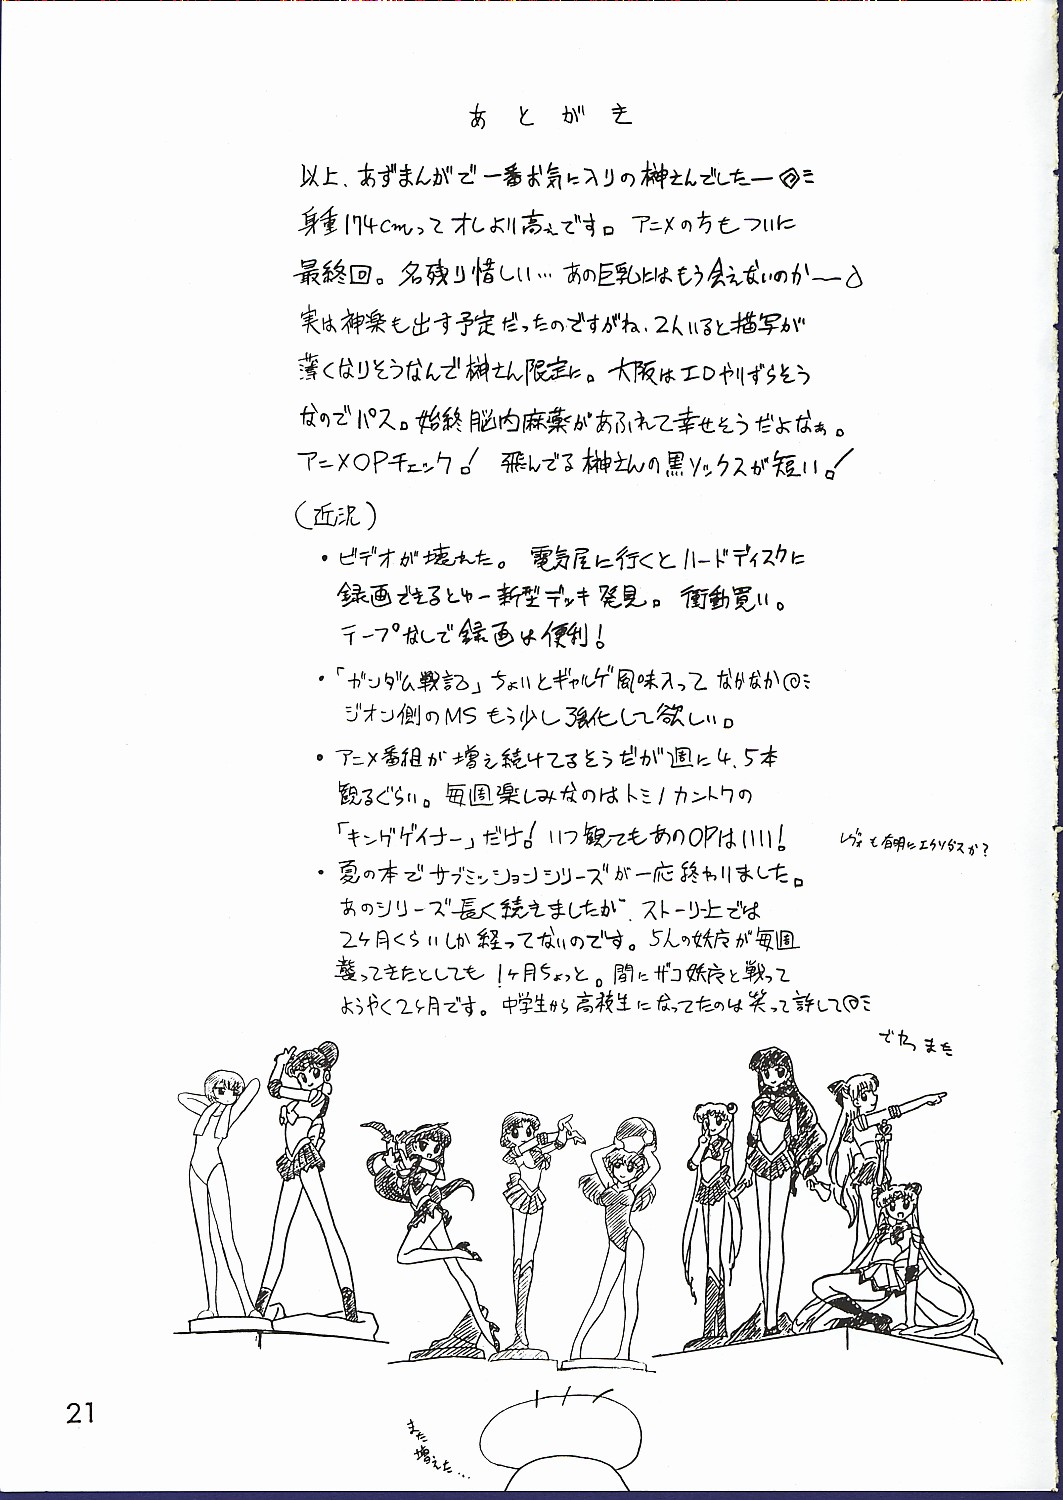 あとがき
以上、あずまんがで一番お気に入りの榊さんでしたー
身重174cmってオレより高ぇです。アニメの方もついに
最終回。名残り惜しい…あの巨乳にはもう会えないのか〜
実は神楽も出す予定だったのですがね、2人いると描写が
薄くなりそうなんで榊さん限定に。大阪はエロやりずらそう
なのでパス。始終脳内麻薬があふれて幸せそうだよなぁ。
アニメOPチェック! 飛んでる榊さんの黒ソックスが短い!
(近況)
・ビデオが壊れた。電気屋に行くとハードディスクに
録画できるとゆー新型デッキ発見。衝動買い。
テープなしで録画は便利!
・「ガンダム戦記」ちょいとギャルゲ風味入ってなかなか
ジオン側のMSもう少し強化して欲しい。
・アニメ番組が増え続けてるそうだが週に4、5本
観るぐらい。毎週楽しみなのはトミノカントクの
「キングゲイナー」だけ!いつ観てもあのOPはいい!
レヴォも有明にエクソダスか?
・夏の本でサブミッションシリーズが一応終わりました。
あのシリーズ長く続きましたが、ストーリー上では
2ヶ月くらいしか経ってないのです。5人の妖魔が毎週
襲ってきたとしても1ヶ月ちょっと。間にザコ妖魔と戦って
ようやく2ヶ月です。中学生から高校生になってたのは笑って許して
でわっまた
また
増えた…
21